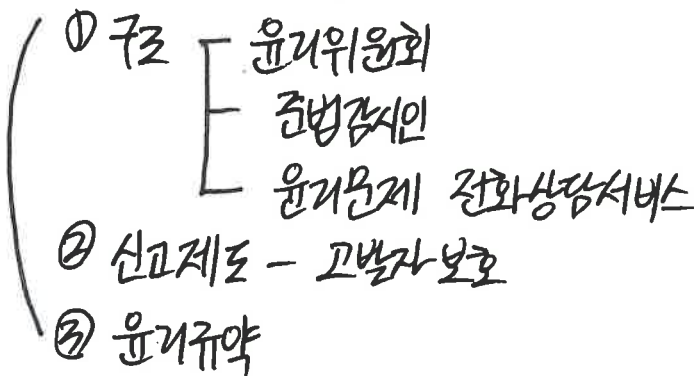 ① 구조 윤리위원회
준법감시인
윤리문제 전화상담서비스
② 신고제도 - 고발자 보호
③ 윤리규약